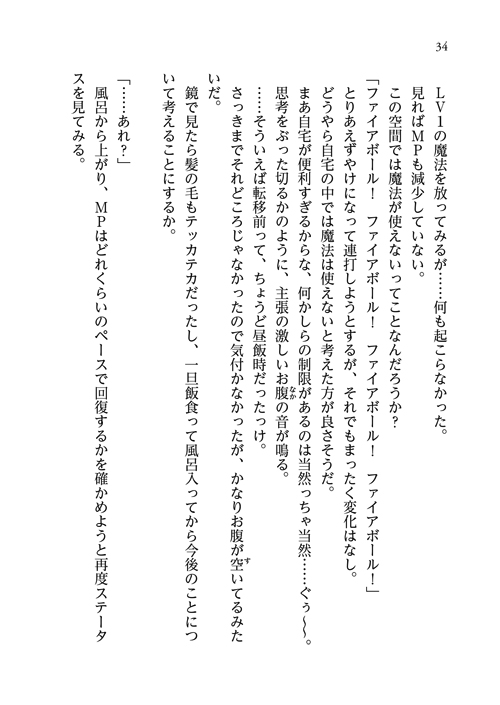 34
ＬＶ１の魔法を放ってみるが……何も起こらなかった。
見ればＭＰも減少していない。
この空間では魔法が使えないってことなんだろうか？
「ファイアボール！　ファイアボール！　ファイアボール！　ファイアボール！」
とりあえずやけになって連打しようとするが、それでもまったく変化はなし。
どうやら自宅の中では魔法は使えないと考えた方が良さそうだ。
まあ自宅が便利すぎるからな、何かしらの制限があるのは当然っちゃ当然……ぐぅ〜〜。
思考をぶった切るかのように、主張の激しいお腹の音が鳴る。
なか
……そういえば転移前って、ちょうど昼飯時だったっけ。
さっきまでそれどころじゃなかったので気付かなかったが、かなりお腹が空いてるみた
す
いだ。
鏡で見たら髪の毛もテッカテカだったし、一旦飯食って風呂入ってから今後のことにつ
いて考えることにするか。
「……あれ？」
風呂から上がり、ＭＰはどれくらいのペースで回復するかを確かめようと再度ステータ
スを見てみる。